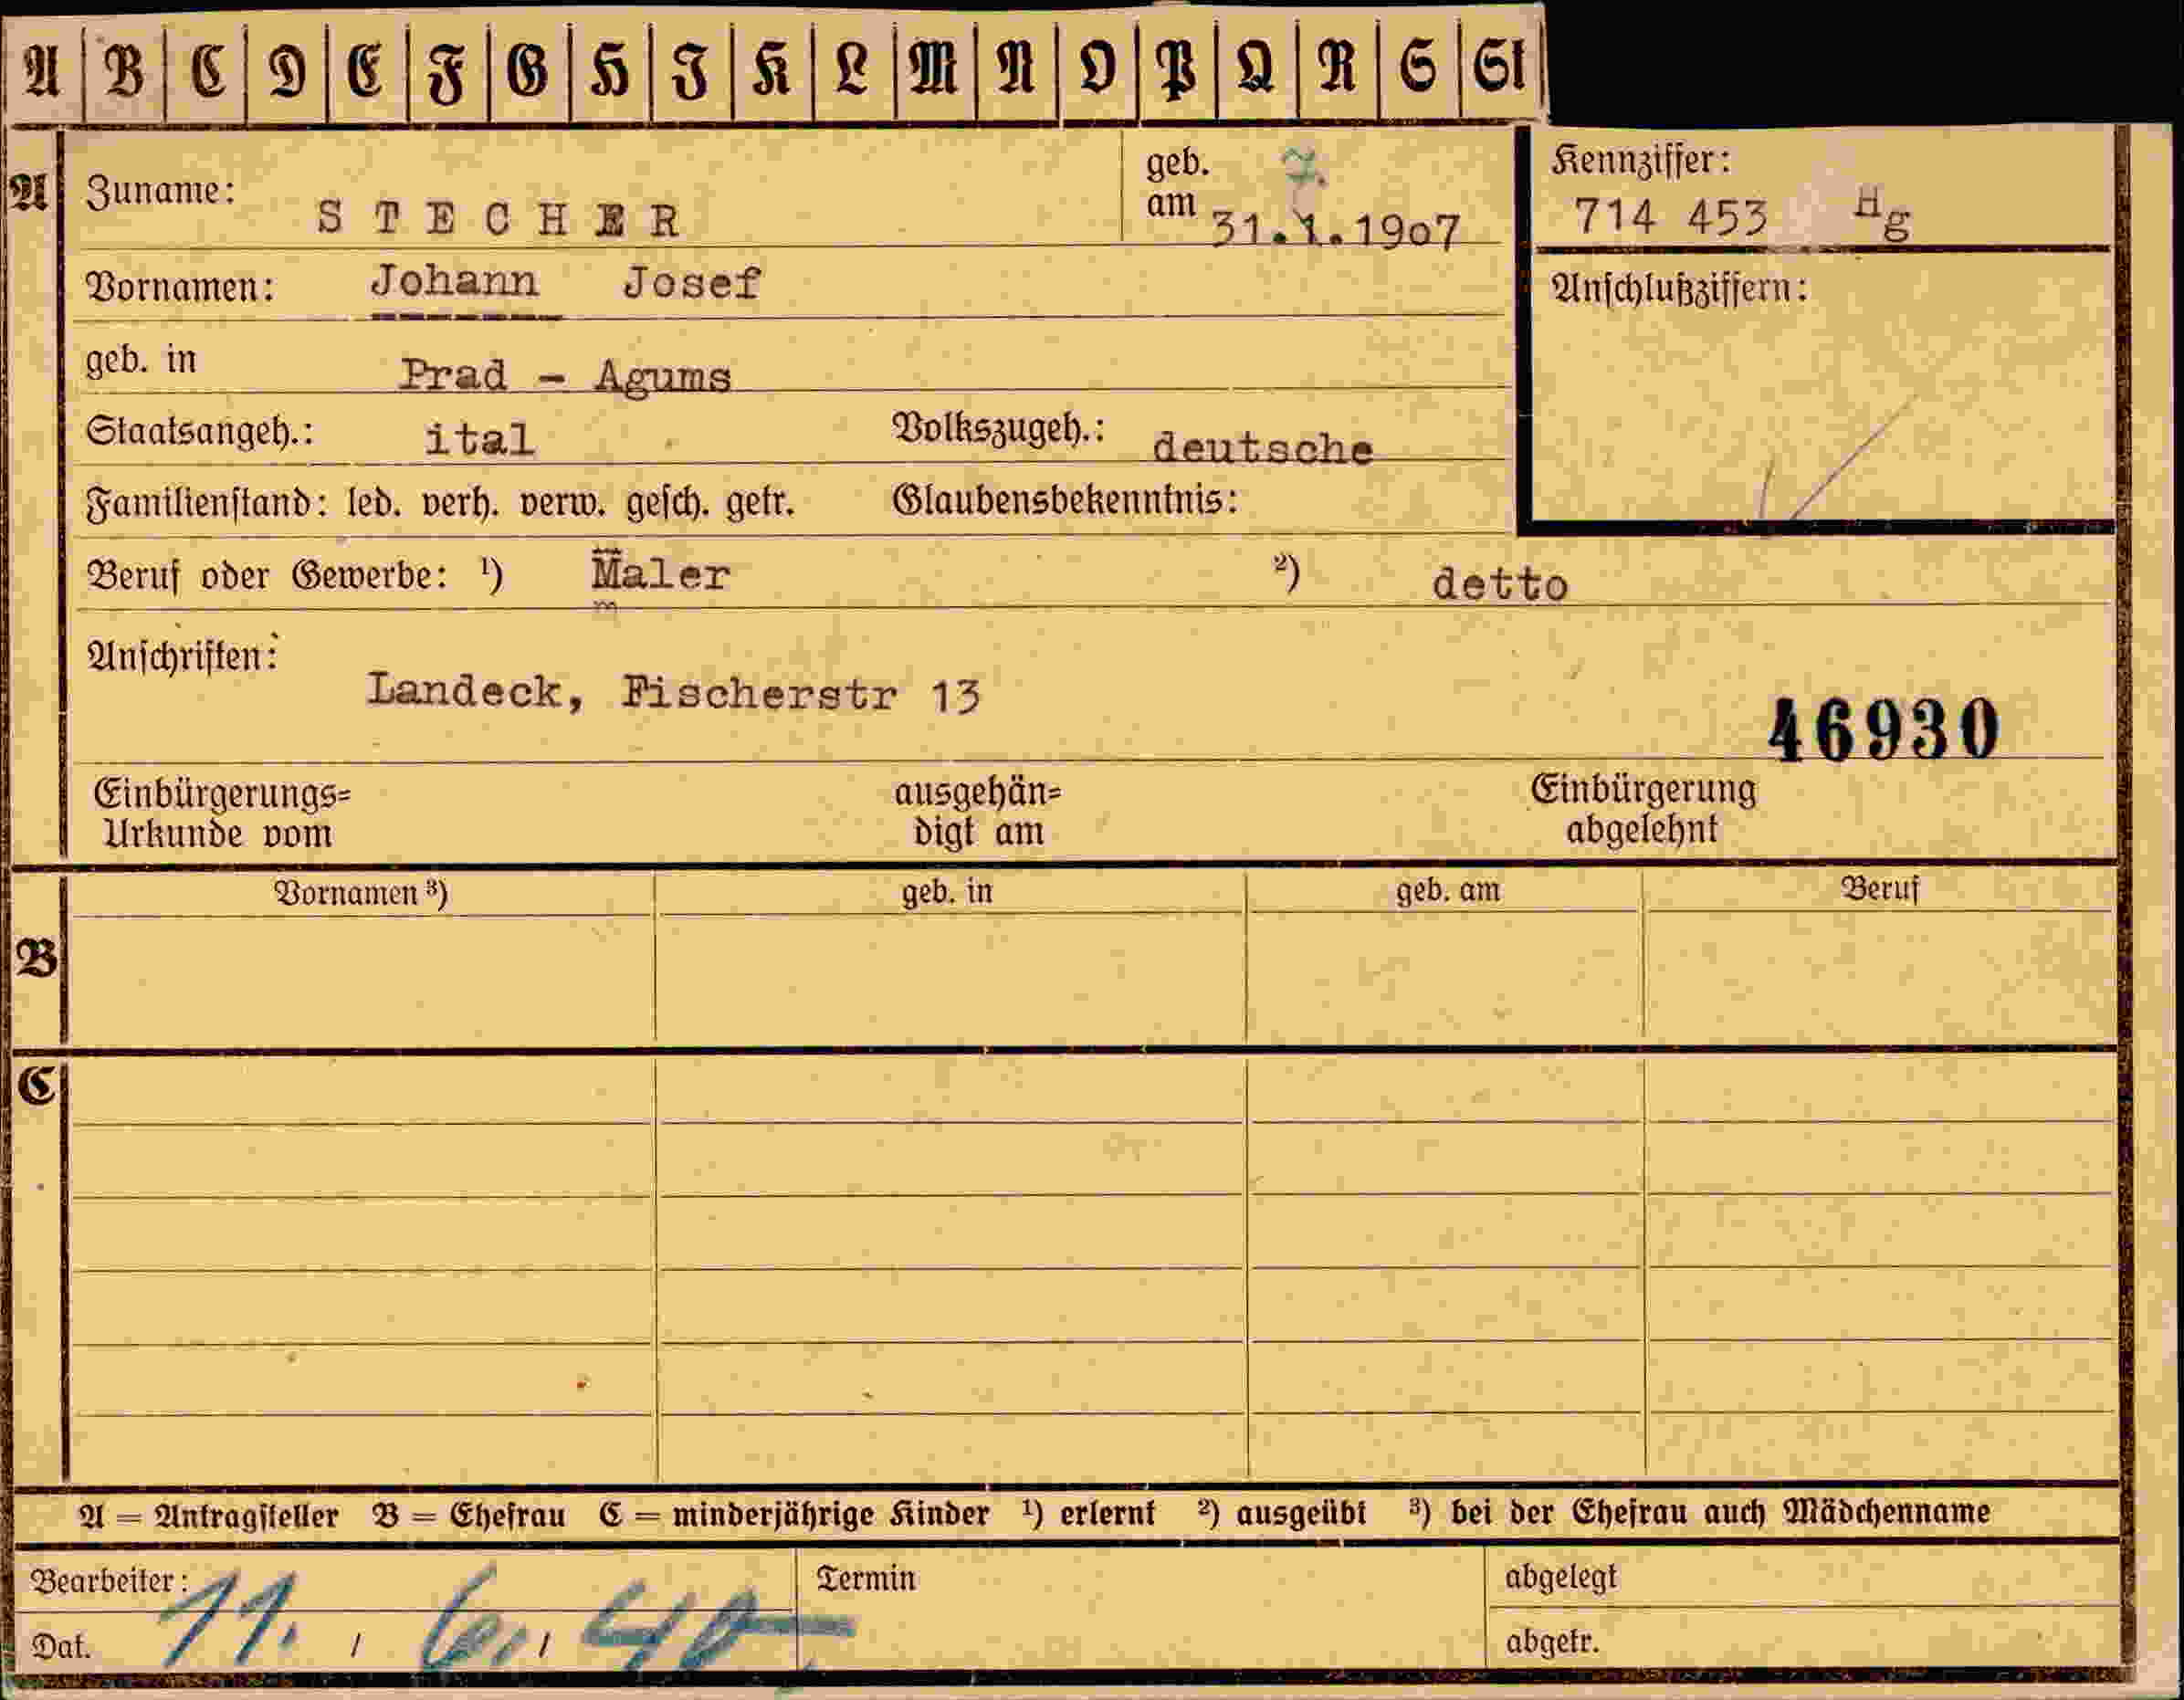 A B C D E F G H I K L M N O P Q R S St
A Zuname: STECHER geb. am 31.1.1907 7.
Kennziffer: 714 453 Hg
Vornamen: Johann Josef
Anschlußziffern:
geb. in Prad - Agums
Staatsangeh.: ital Volkszugeh.: deutsche
Familienstand: led. verh. verw. gesch. getr. Glaubensbekenntnis:
Beruf oder Gewerbe: ¹) Maler ²) detto
Anschriften: Landeck, Fischerstr 13
46930
Einbürgerungs= Urkunde vom ausgehän= digt am Einbürgerung abgelehnt
B Vornamen ³) geb. in geb. am Beruf
C
A = Antragsteller B = Ehefrau C = minderjährige Kinder ¹) erlernt ²) ausgeübt ³) bei der Ehefrau auch Mädchenname
Bearbeiter: Termin abgelegt
Dat. 11. / 6. / 40 abgetr.